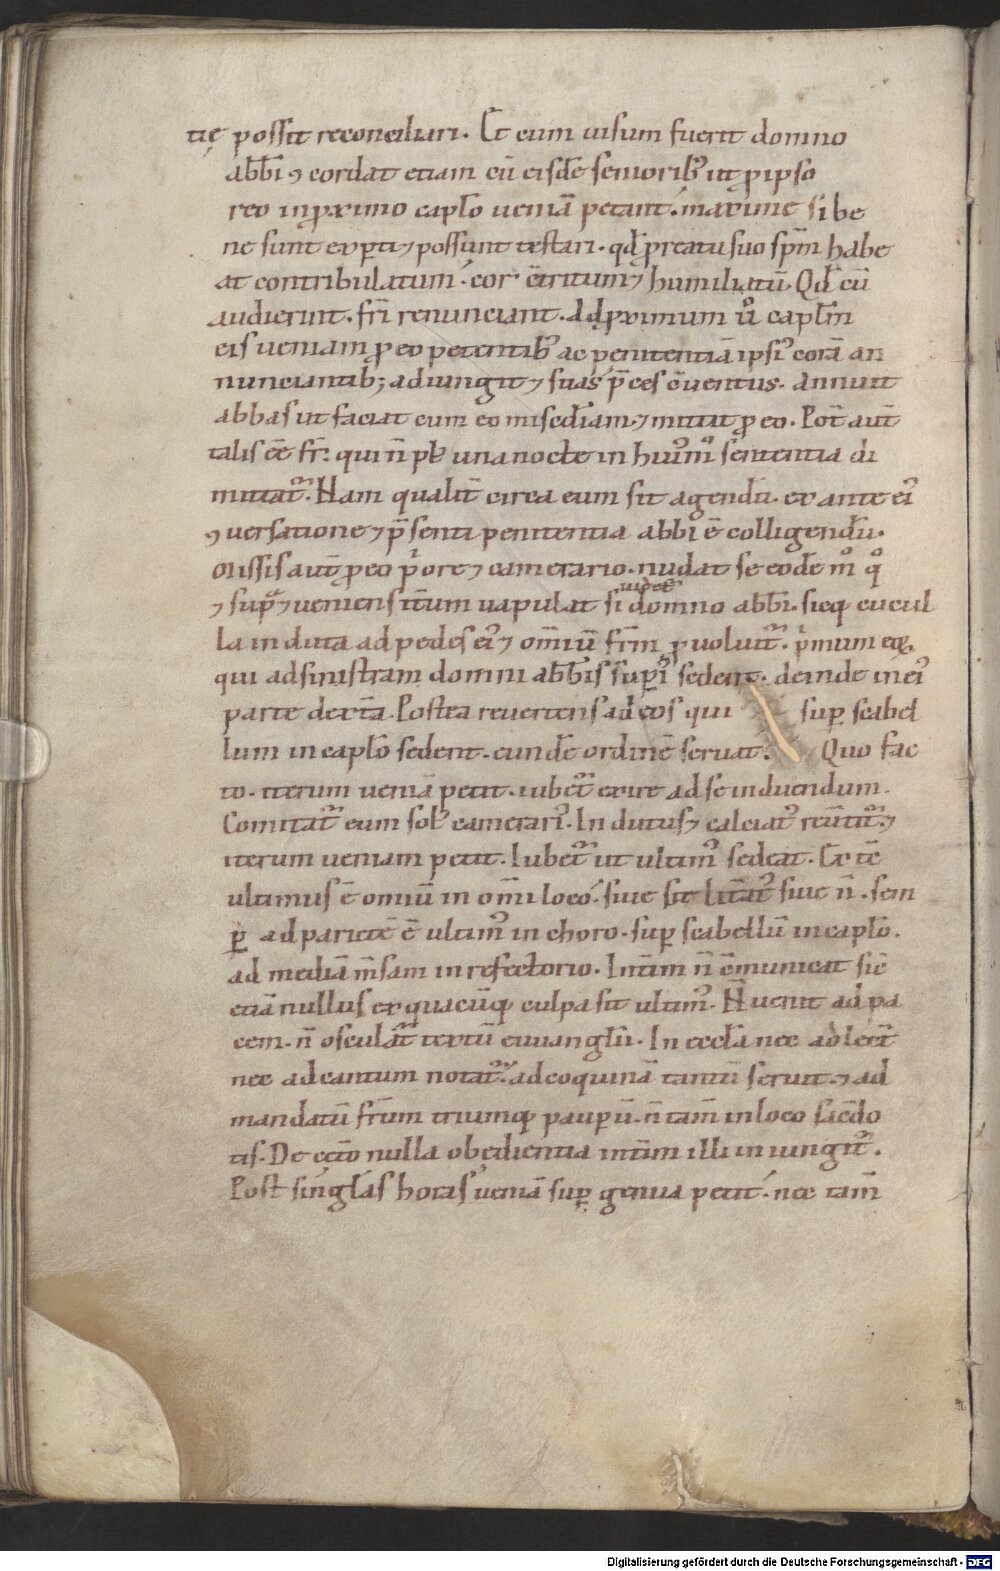 tię possit reconciliari. Et cum uisum fuerit domno
abb̄i ꝯcordat etiam cū eisdē seniorib; ut ꝓ ipso
reo in ꝓximo caplo ueniā petant. maxime si be
ne sunt exꝑti ⁊ possunt testari. qd̄ ꝓ reatu suo spm̄ habe
at contribulatum. cor c̄tritum ⁊ humiliatū. Qd̄ cū
audierint. fr̄i renunciant. Ad ꝓximum ů caplm̄
eis ueniam ꝓ eo petentib; ac penitentiā ipsi' corā an
nunciantib; adiungit ⁊ suas p̄ces c̄uentus. Annuit
abbas ut faciat cum eo mis̄cdiam. ⁊ mittit ꝓ eo. Pot̄ aut̄
talis eē fr̄. qui n̄ pt̄ una nocte in hui'mi sententia di
mittat̄. Nam qualit̄ circa eum sit agendū. ex ante ei'
ꝯuersatione ⁊ p̄senti penitentia abb̄i ē colligendū.
Missis aut̄ ꝓ eo p̄ore ⁊ camerario. nudat se eodē m̊ q̊
⁊ sup̄ ⁊ ueniens it̄um uapulat si domno abb̄i. sicq; cucul
uidet̄
la induta ad pedes ei' ⁊ om̄iū fr̄m ꝓuoluit̄. p̄mum eoꝝ
qui ad sinistram domni abb̄is supi' sedent. deinde in ei'
parte dext̄a. Postea reuertens ad eos qui suꝑ scabel
lum in caplo sedent. eundē ordinē seruat. Quo fac
to. iterum ueniā petit. iubet̄ exire ad se induendum.
Comitat̄ eum sol' camerari'. Indutus ⁊ calciat' reūtit̄. ⁊
iterum ueniam petit. Iubet̄ ut ultim' sedeat. Ex tc̄
ultimus ē omiū in om̄i loco. siue sit lit̄at' siue n̄. sem
ꝑ ad parietē ē ultim' in choro. suꝑ scabellū in caplo.
ad mediā m̄sam in refectorio. Int̄im n̄ c̄municat sic̄
etiā nullus ex quacūq; culpa sit ultim'. N̄ uenit ad pa
cem. n̄ osculat̄ textū euuanglii. In eccla nec ad lect̄
nec ad cantum notat̄. ad coquinā tantū seruit. ⁊ ad
mandatū fr̄um triumq; pauꝑū. n̄ tam̄ in loco sac̄do
tis. De cet̄o nulla obedientia int̄im illi iniungit̄.
Post singlas horas ueniā suꝑ genua petit. nec tam̄
Digitalisierung gefördert durch die Deutsche Forschungsgemeinschaft - DFG